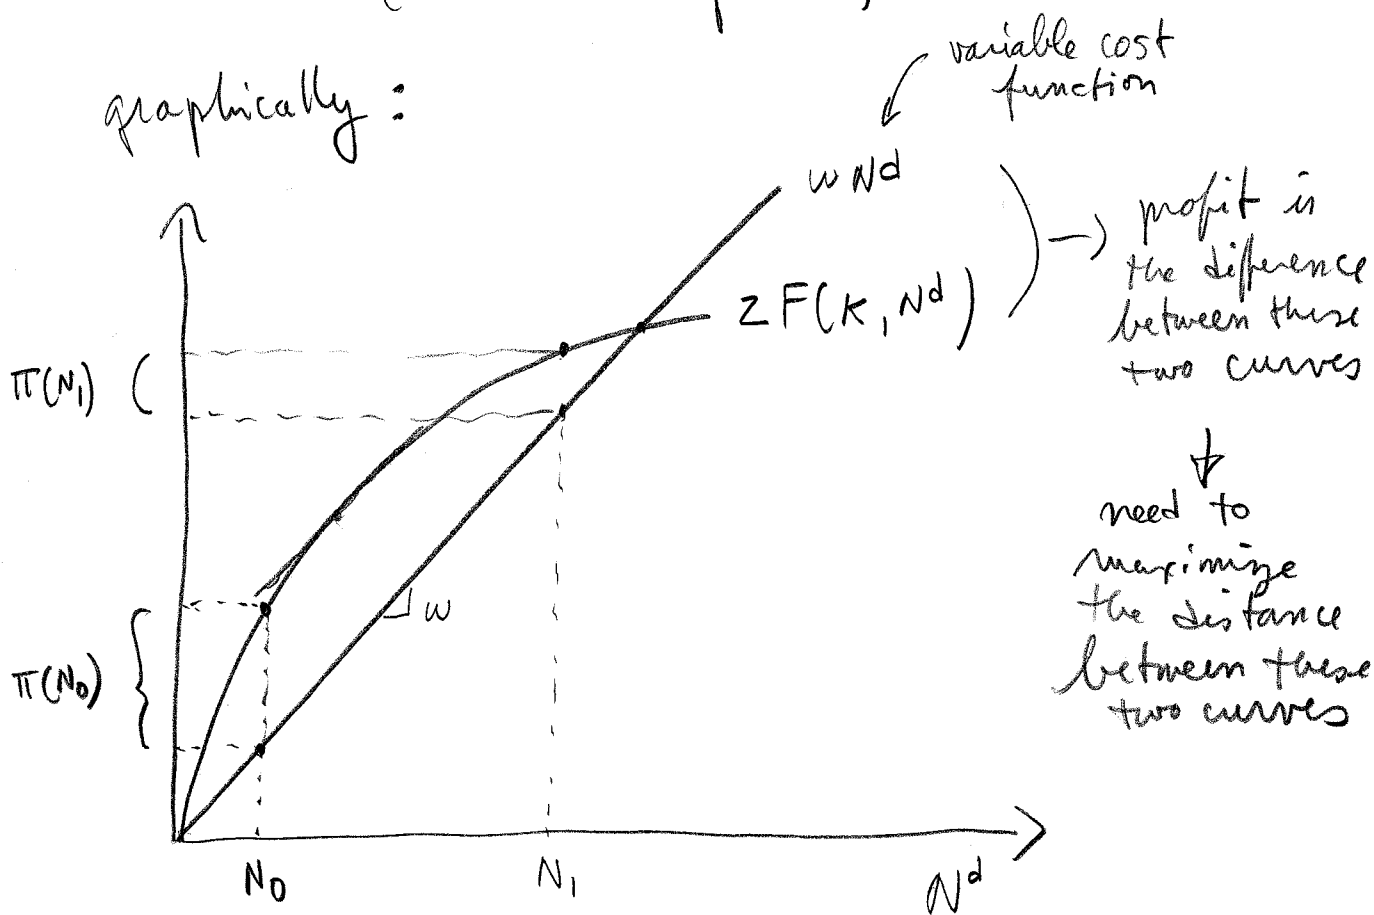 graphically :
variable cost
function
w Nd
z F(K, Nd)
profit is
the difference
between these
two curves
need to
maximize
the distance
between these
two curves
π(N1)
π(N0)
w
N0
N1
Nd